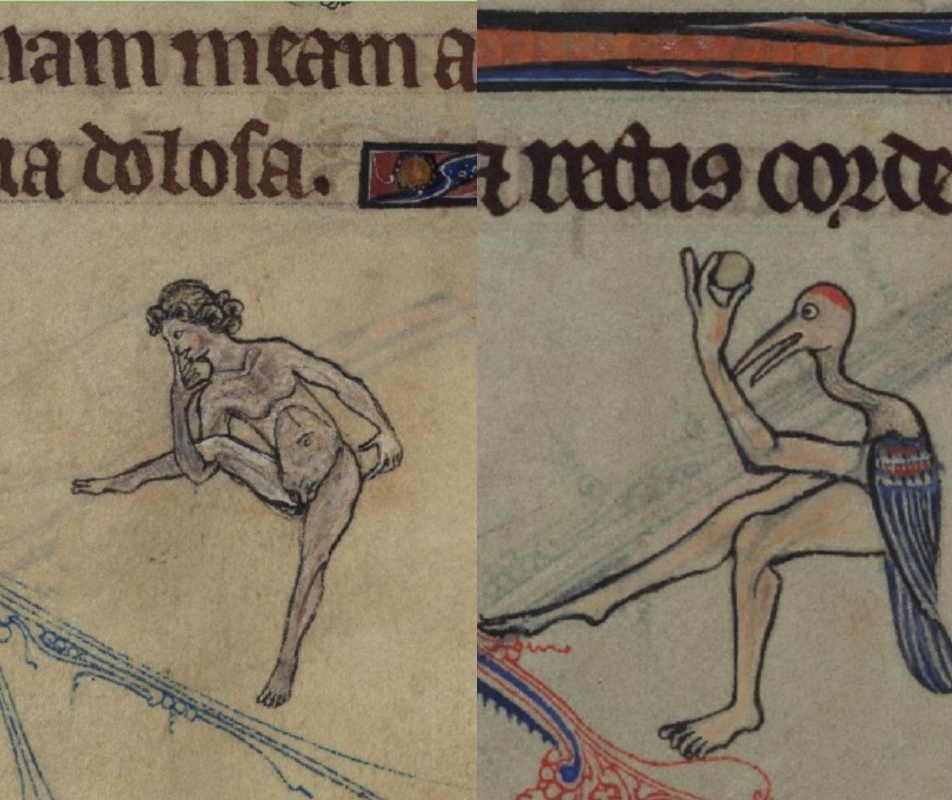 iam meam a
ua dolosa.
rectis corde